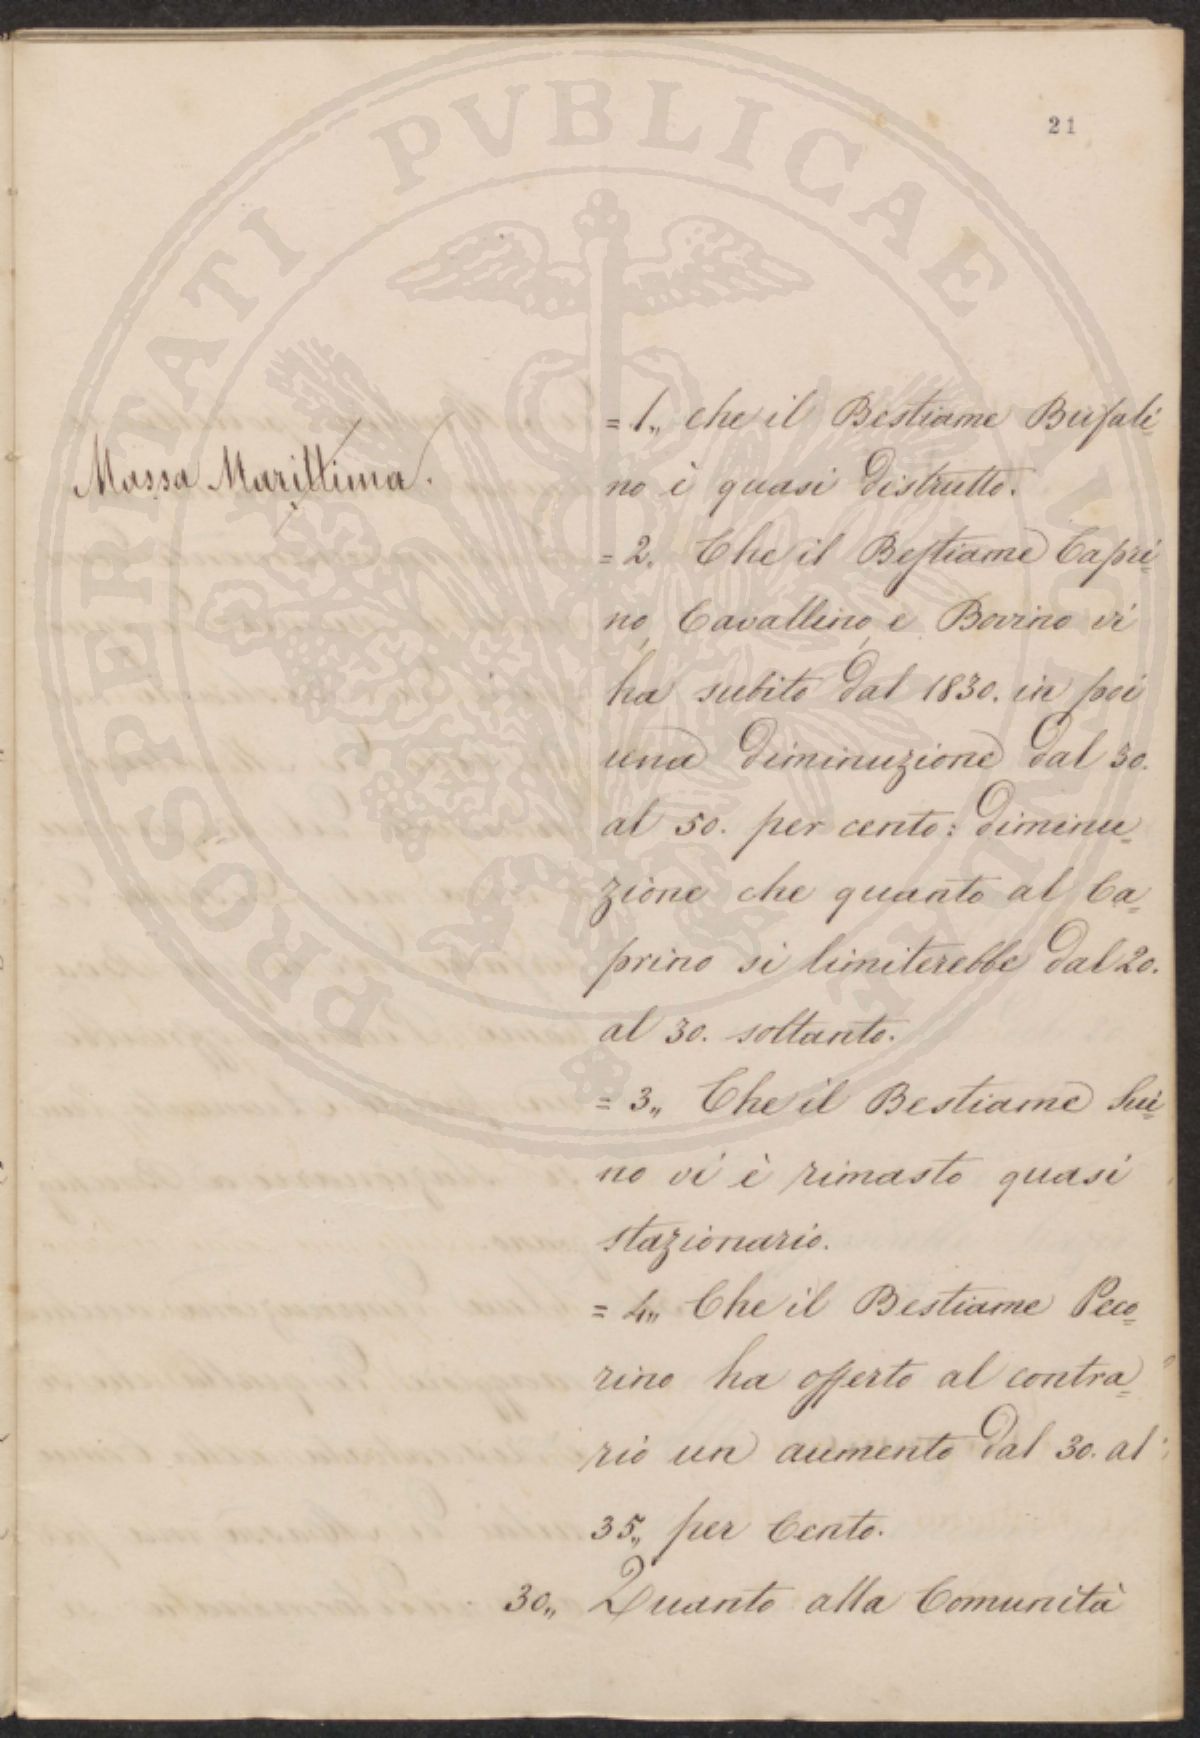 21
PROSPERITATI PVBLICAE
Massa Marittima.
= 1„ che il Bestiame Bufali=
no è quasi distrutto.
= 2. Che il Bestiame Capri=
no, Cavallino, e Bovino vi
ha subito dal 1830. in poi
una diminuzione dal 30.
al 50. per cento: diminu=
zione che quanto al Ca=
prino si limiterebbe dal 20.
al 30. soltanto.
= 3„ Che il Bestiame Sui=
no vi è rimasto quasi
stazionario.
= 4„ Che il Bestiame Peco=
rino ha offerto al contra=
rio un aumento dal 30. al
35„ per Cento.
30„ Quanto alla Comunità